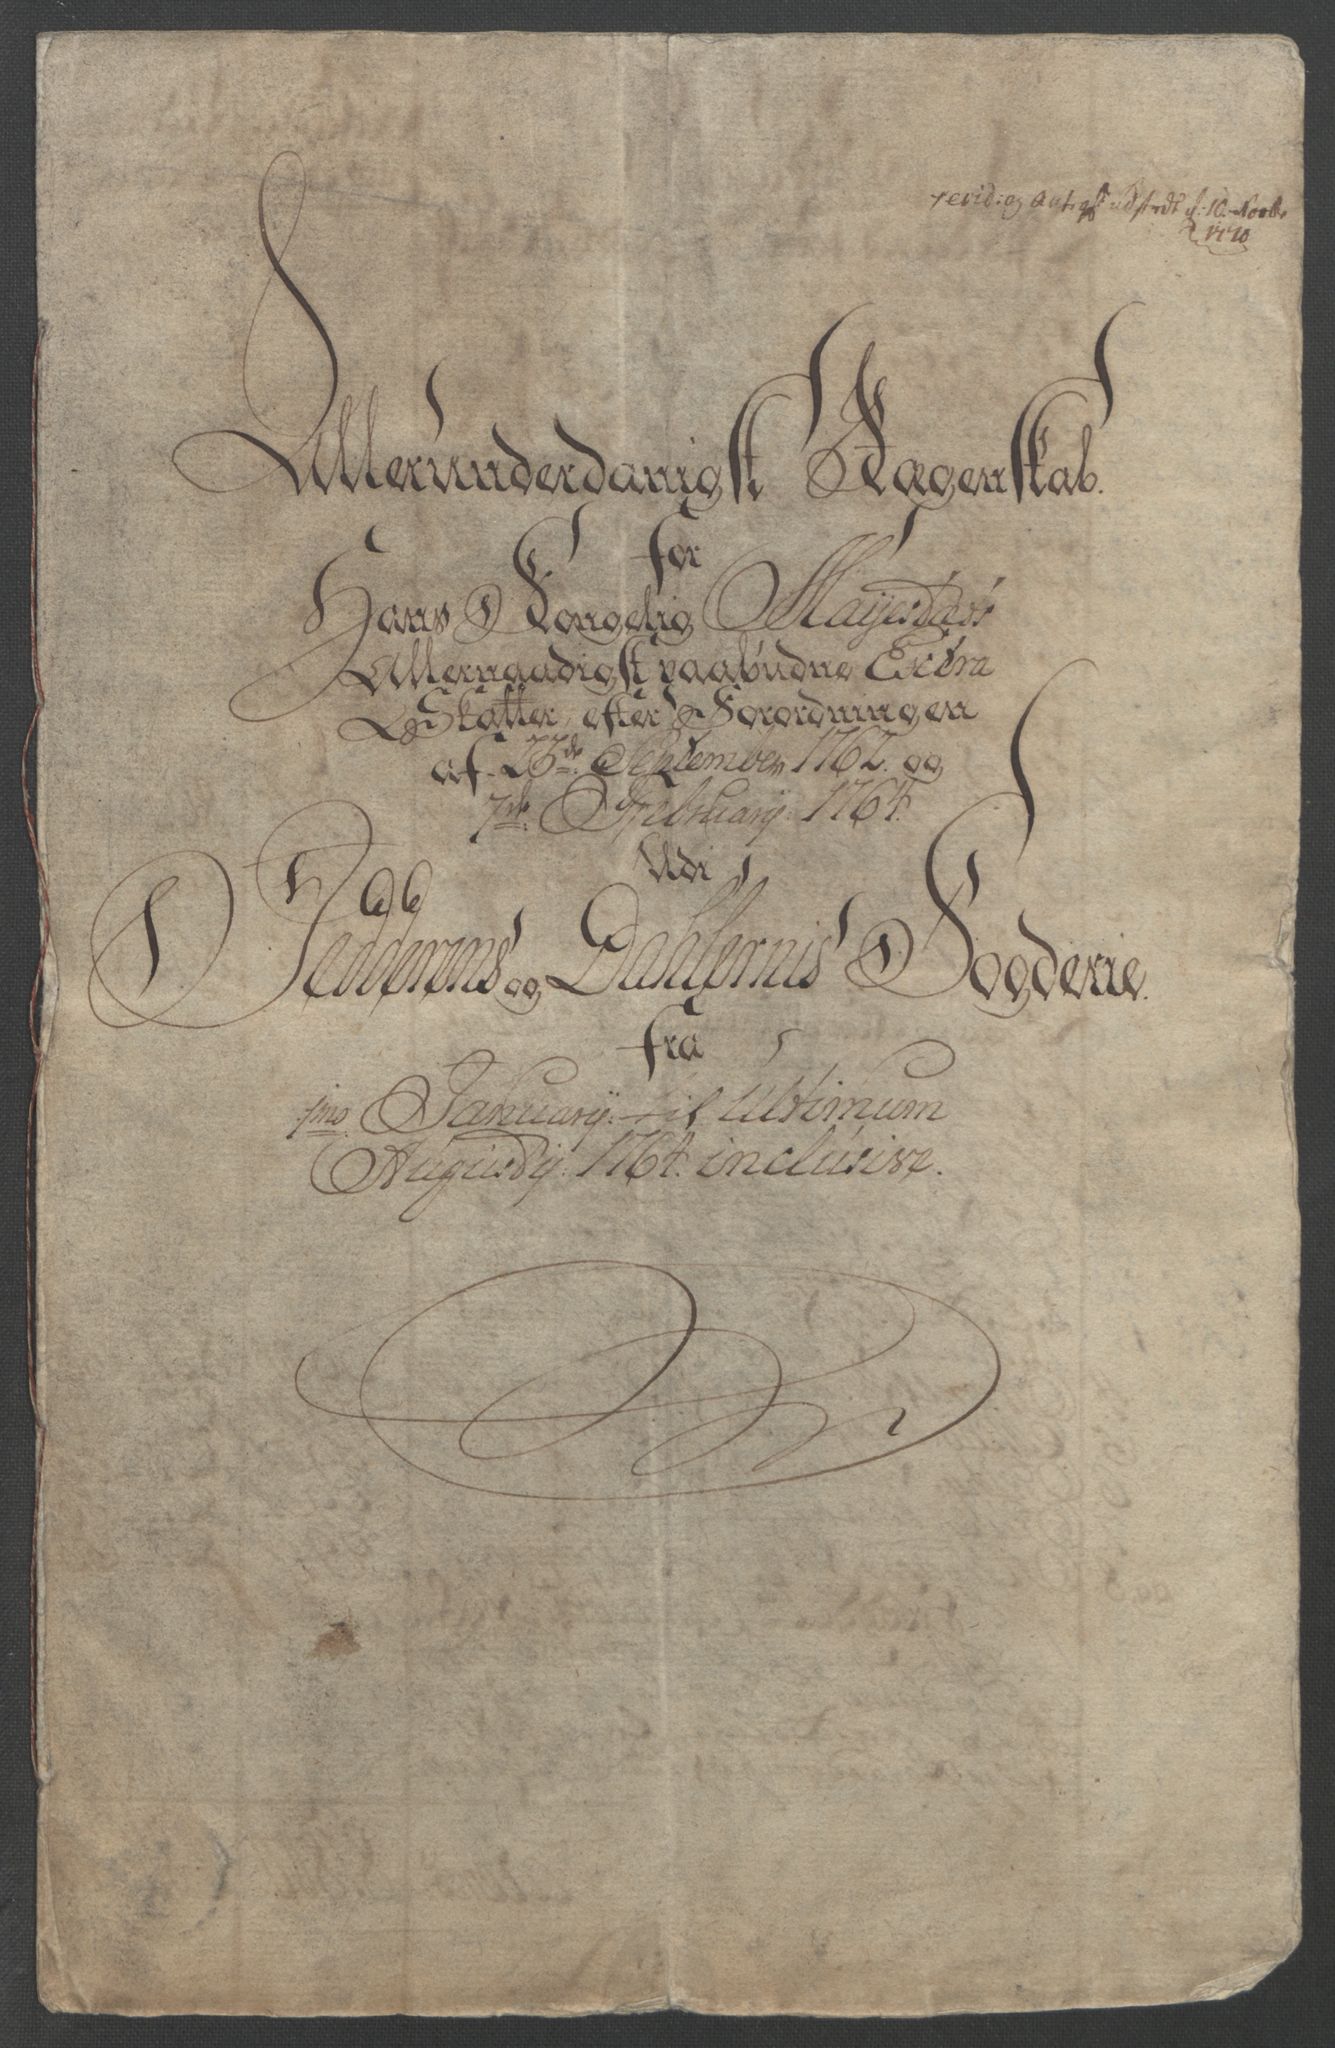 revid: og Antegn: udstædt d: 10. Novbr
1770
Allerunderdanigst Rægenskab.
for
Hans Kongelig Mayestæts
Allernaadigst paabudne Extra
Skatter, efter Forordningen
af 23de September 1762. og
7de February: 1764.
Udi
Jedderens og Dahlernis Fogderie.
fra
1mo January: til Ultimum
Augusty: 1764. inclusive.